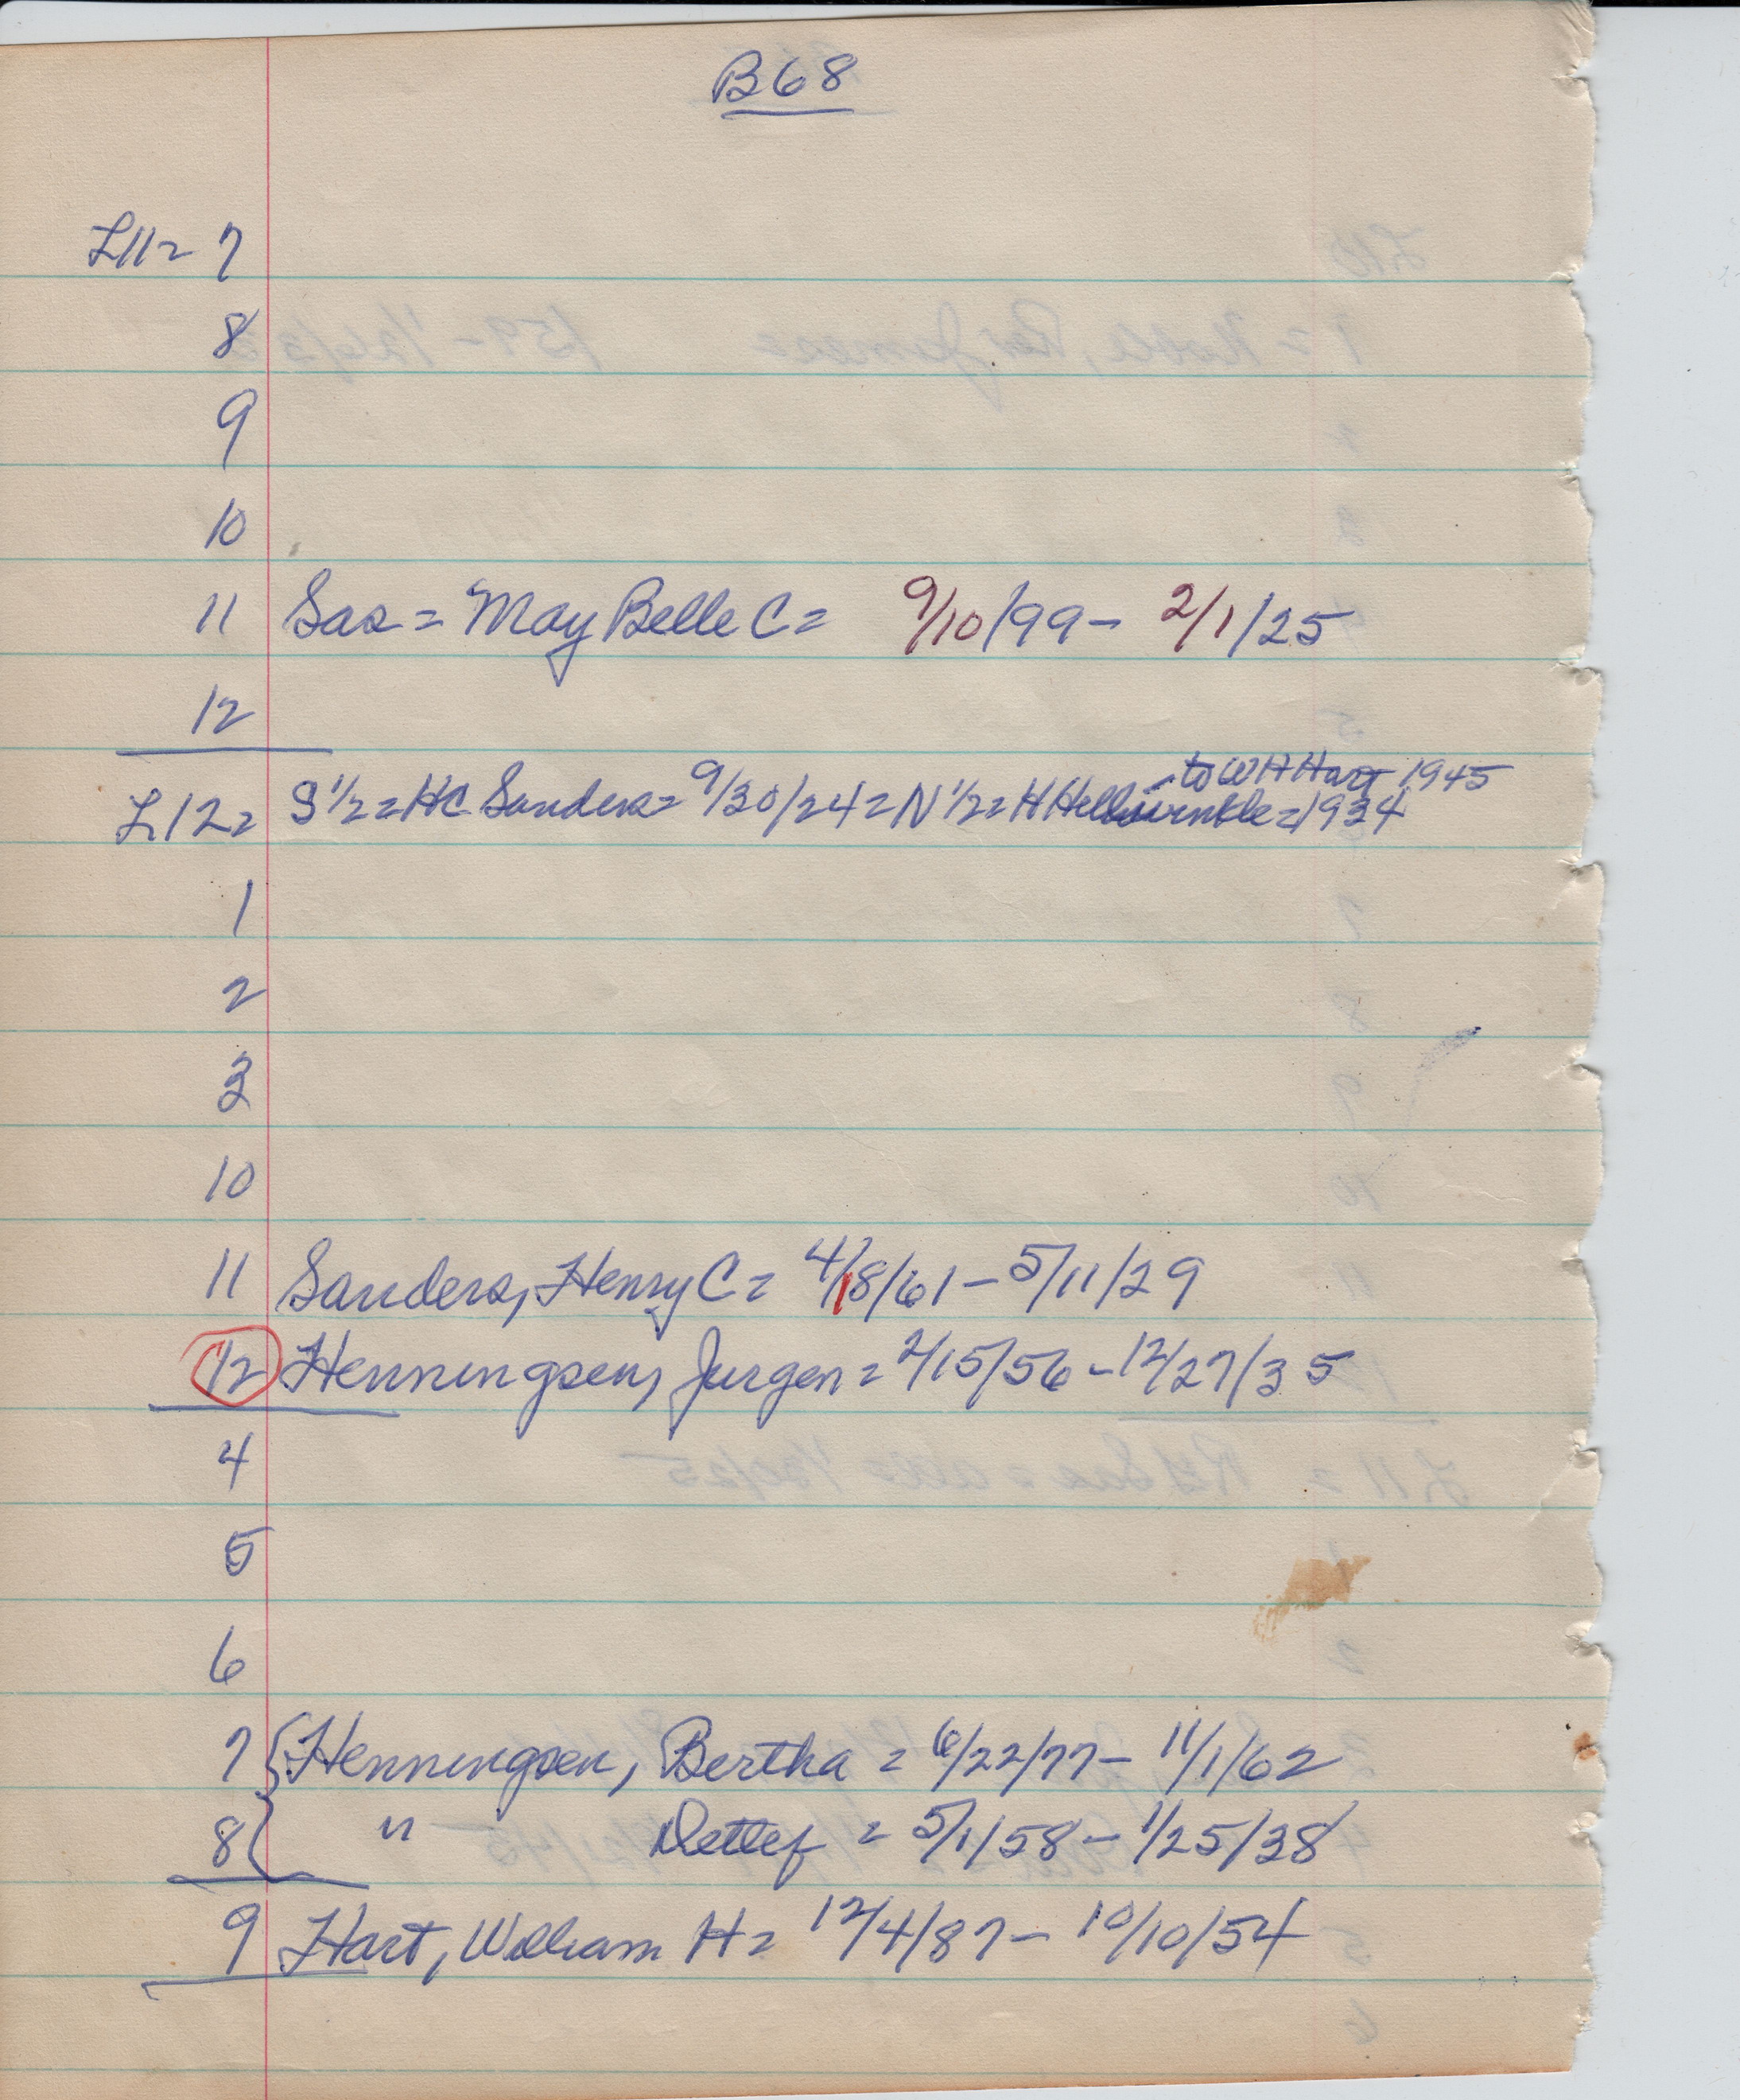 B68
L11= 7
8
9
10
11 Sas = May Belle C = 9/10/99 - 2/1/25
12
- to W H Hart 1945
L12= S 1/2 = HC Sanders = 9/30/24 = N 1/2 = H Hellwinkle = 1934
1
2
3
10
11 Sanders, Henry C = 4/18/61 - 5/11/29
12 Henningsen, Jurgen = 2/15/56 - 12/27/35
4
5
6
7 { Henningsen, Bertha = 6/22/77 - 11/1/62
8 { " Detlef = 5/1/58 - 1/25/38
9 Hart, William H = 12/4/87 - 10/10/54